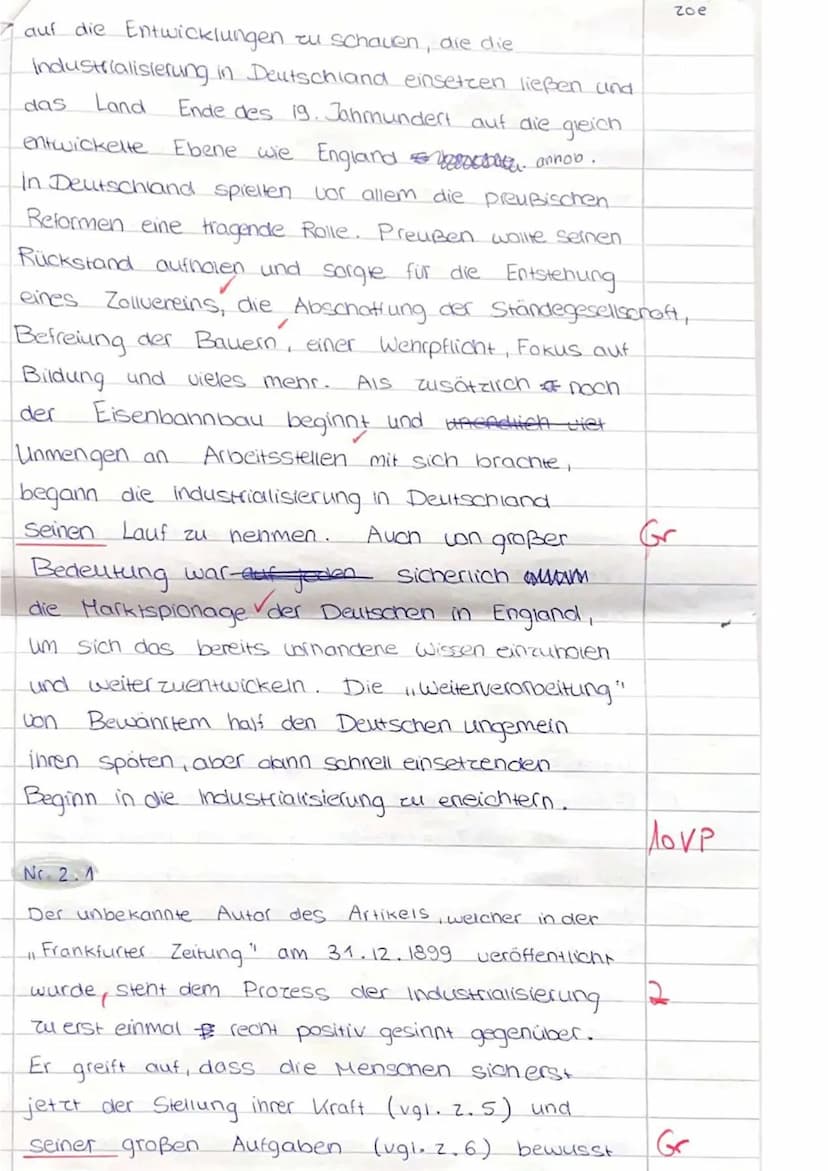 zoe
auf die Entwicklungen zu schauen, die die
Industrialisierung in Deutschland einsetzen ließen und
das Land Ende des 19. Jahrhundert auf die gleich
entwickelte Ebene wie England anhob.
In Deutschland spielten vor allem die preußischen
Reformen eine tragende Rolle. Preußen wollte seinen
Rückstand aufholen und sorgte für die Entstehung
eines Zollvereins, die Abschaffung der Ständegesellschaft,
Befreiung der Bauern, einer Wehrpflicht, Fokus auf
Bildung und vieles mehr. Als zusätzlich noch
der Eisenbahnbau beginnt und unendlich viel
Unmengen an Arbeitsstellen mit sich brachte,
begann die Industrialisierung in Deutschland
seinen Lauf zu nehmen. Auch von großer Gr
Bedeutung war auf jeden sicherlich
die Marktspionage der Deutschen in England,
um sich das bereits vorhandene Wissen einzuholen
und weiterzuentwickeln. Die „Weiterverarbeitung"
von Bewährtem half den Deutschen ungemein
ihren späten, aber dann schnell einsetzenden
Beginn in die Industrialisierung zu erleichtern.
10VP
Nr. 2.1
Der unbekannte Autor des Artikels, welcher in der
„Frankfurter Zeitung" am 31.12.1899 veröffentlicht
wurde, steht dem Prozess der Industrialisierung 2
zu erst einmal recht positiv gesinnt gegenüber.
Er greift auf, dass die Menschen sich erst
jetzt der Stellung ihrer Kraft (vgl. Z.5) und
seiner großen Aufgaben (vgl. Z.6) bewusst Gr